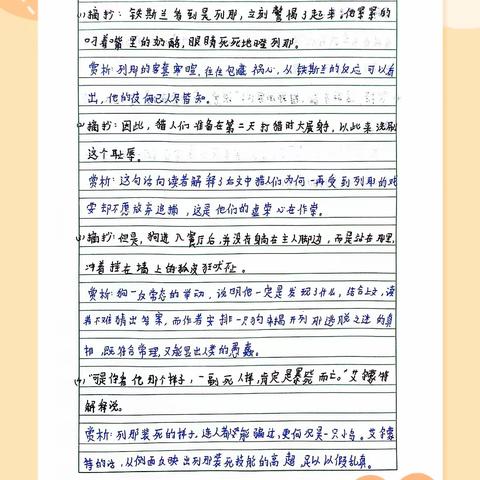 (1)摘抄:铁斯兰看到是列那,立刻警惕了起来:他紧紧的
叼着嘴里的奶酪,眼睛死死地瞪列那。
赏析:列那的客套寒暄,往往包藏祸心,从铁斯兰的反应可以看
出,他的伎俩已人尽皆知。
(2)摘抄:因此,猎人们准备在第二天打猎时大展身手,以此来洗刷
这个耻辱。
赏析:这句话向读者解释了如文中猎人们为何一再受到列那的戏
耍却不愿放弃追捕,这是他们的虚荣心在作祟。
(3)摘抄:但是,狗进入餐厅后,并没有躺在主人脚边,而是站在那里,
冲着挂在墙上的狐皮狂吠不止。
赏析:狗一反常态的举动,说明他一定是发现了什么,结合上文,读
者不难猜出答案,而作者安排一只狗来揭开列那逃脱之迷的真
相,既符合常理,又能显出人类的愚蠢。
(4)"可是你看他那个样子,一副死人样,肯定是暴毙而亡。"艾镖特
解释说。
赏析:列那装死的样子,连人都能骗过,更何况是一只小鸟。艾镖
特的话,从侧面反映出列那装死技能的高超足以以假乱真。